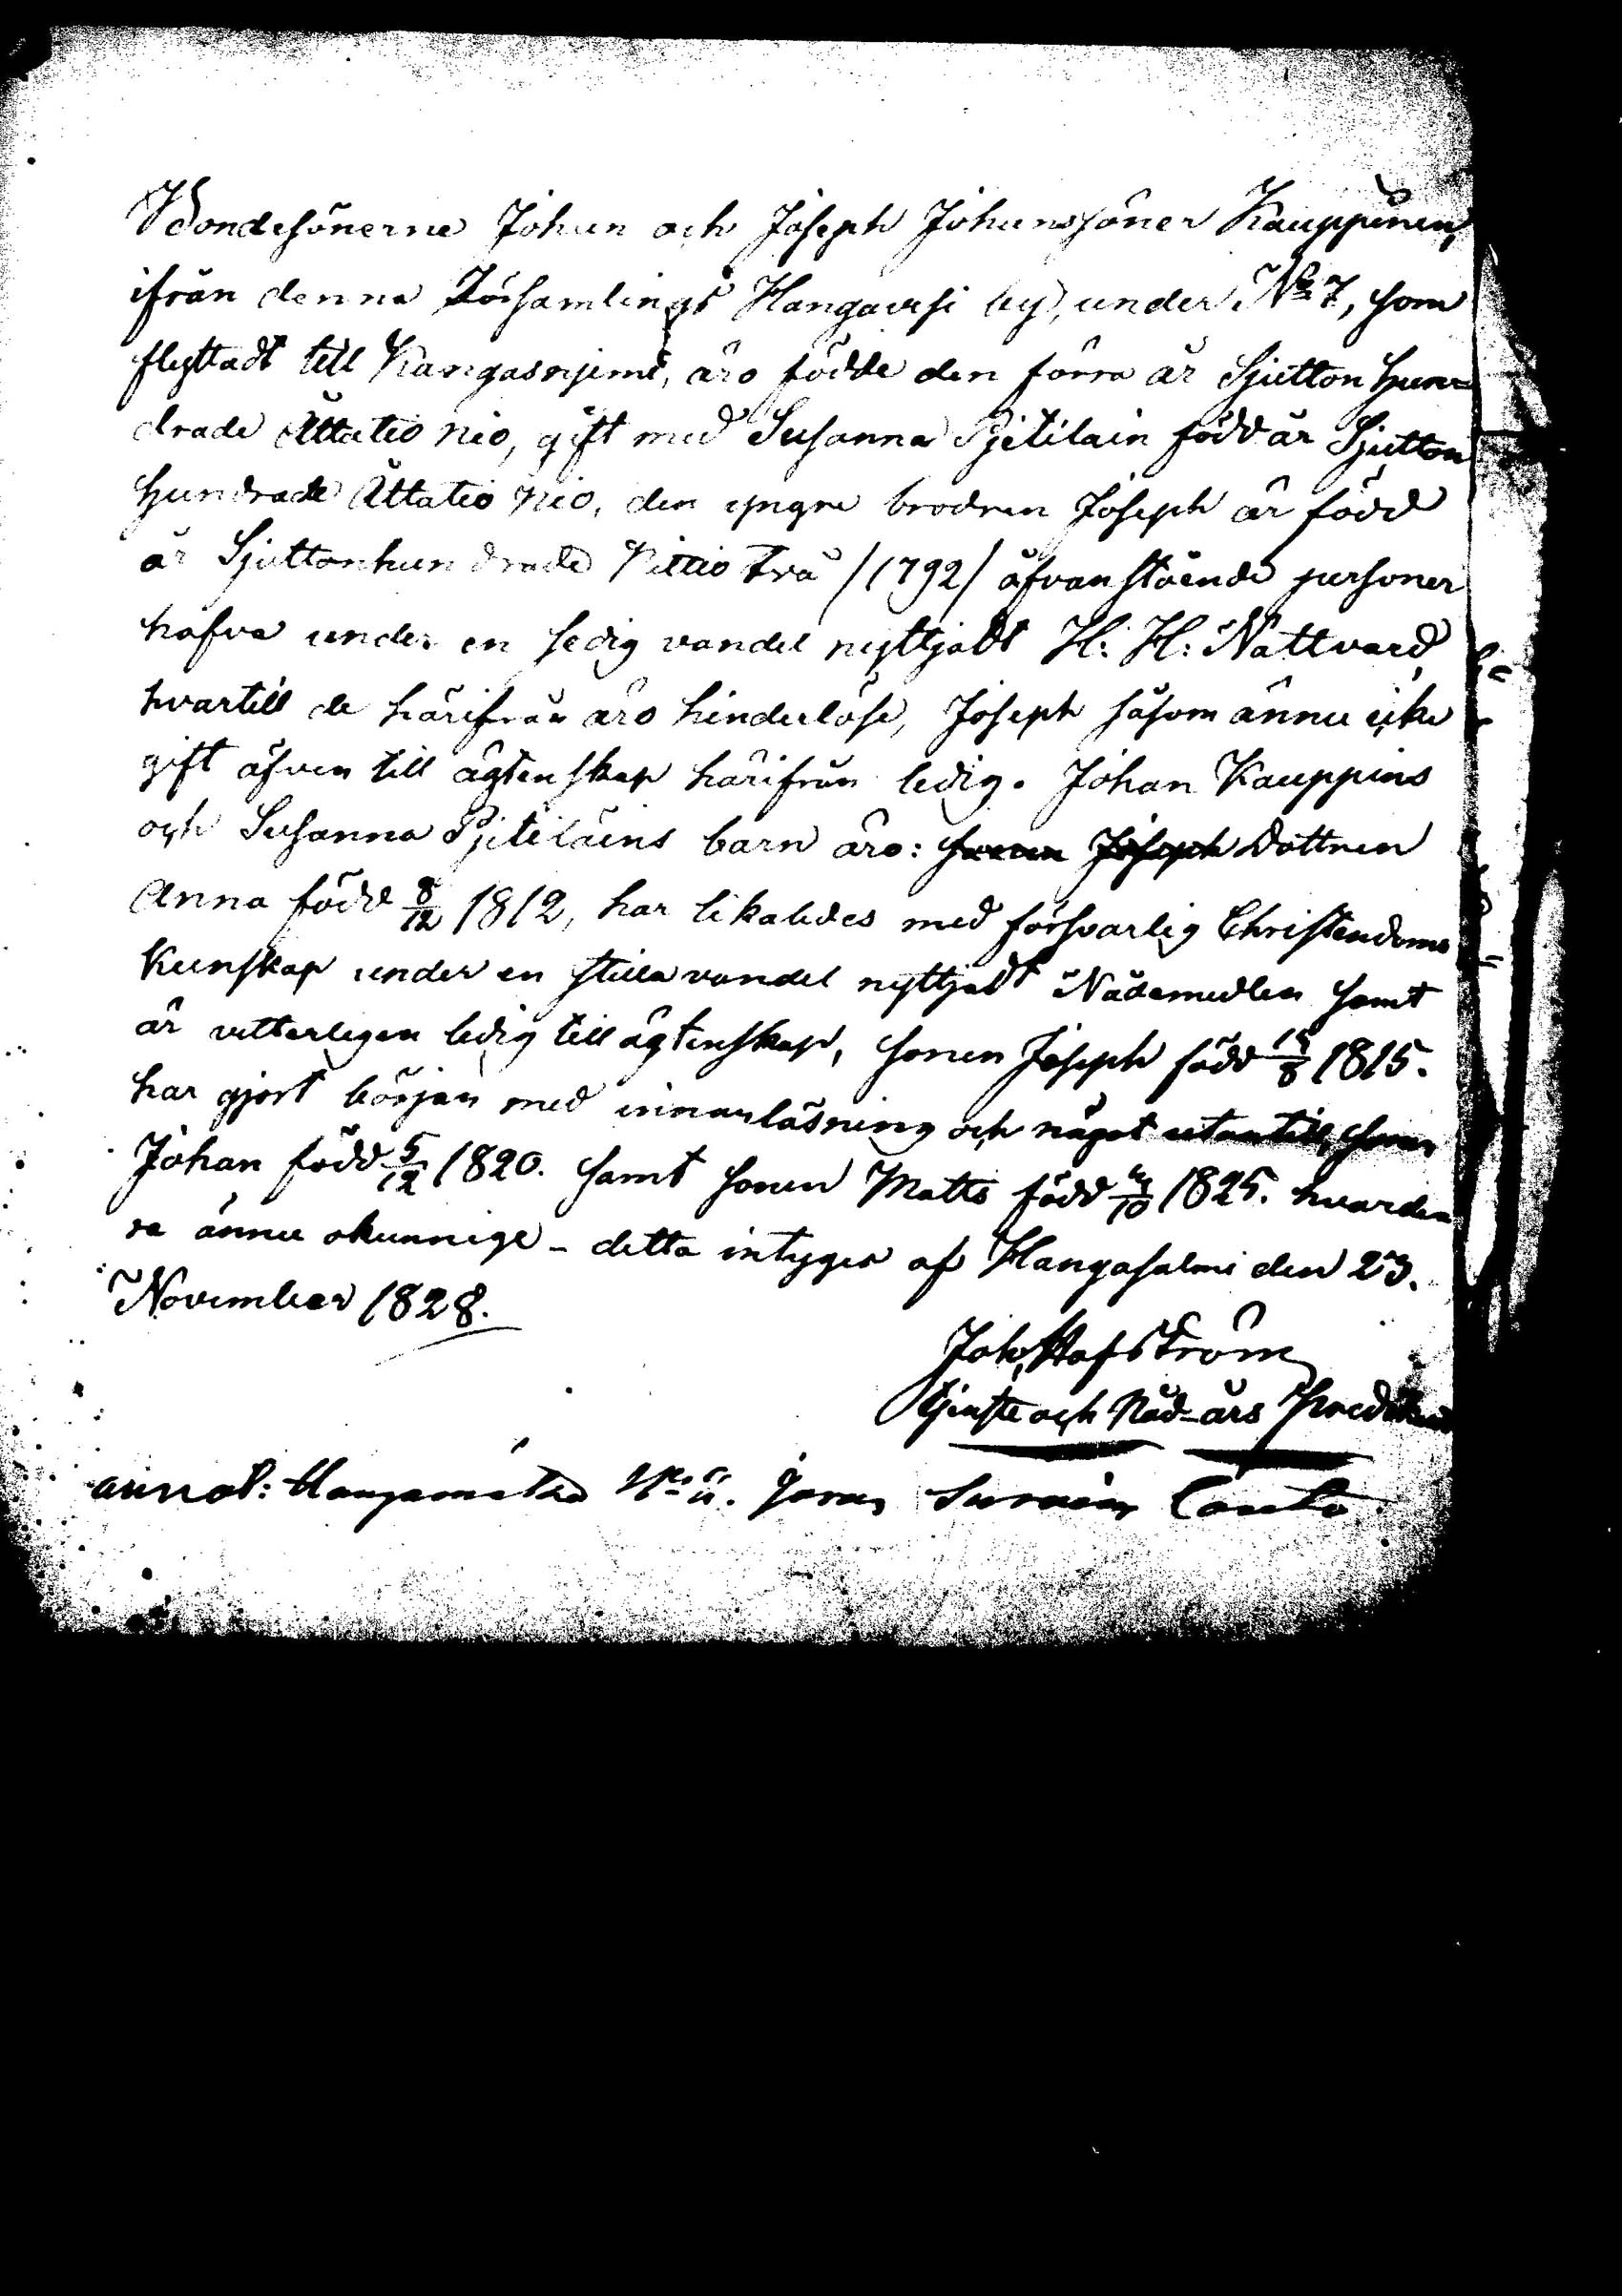 Bondesönerne Johan och Joseph Johanssöner Kauppinen,
ifrån denna Församlings Hangaersi by, under No 7, som
flyttadt till Kangasnjemi, äro födde den förra år Sjutton Hun-
drade Åttatio nio, gift med Susanna Pjetiläin född år Sjutton
Hundrade Åttatio Nio, den yngre brodren Joseph är född
år Sjuttonhundrade Nittio två /1792/ åfvanstående personer
hafva under en sedig vandel nyttjadt H: H: Nattvard,
hvartill de härifrån äro hinderlöse, Joseph såsom ännu icke
gift äfven till ägtenskap härifrån ledig. Johan Kauppins
och Susanna Pjetiläins barn äro: sonen Joseph Dottren
Anna född 8/12 1812, har likaledes med försvarlig Christendoms
Kunskap under en stilla vandel nyttjadt Nådemedlen samt
är vetterligen ledig till ägtenskap, sonen Joseph född 14/8 1815.
har gjort början med innanläsning och något utantill, sonen
Johan född 5/12 1820. samt sonen Matts född 4/10 1825. hvarden
ra ännu okunnige - detta intyges af Hangasalmi den 23.
November 1828.
Joh. Hafström
tjenste och Nåd-års Predikant
annot: